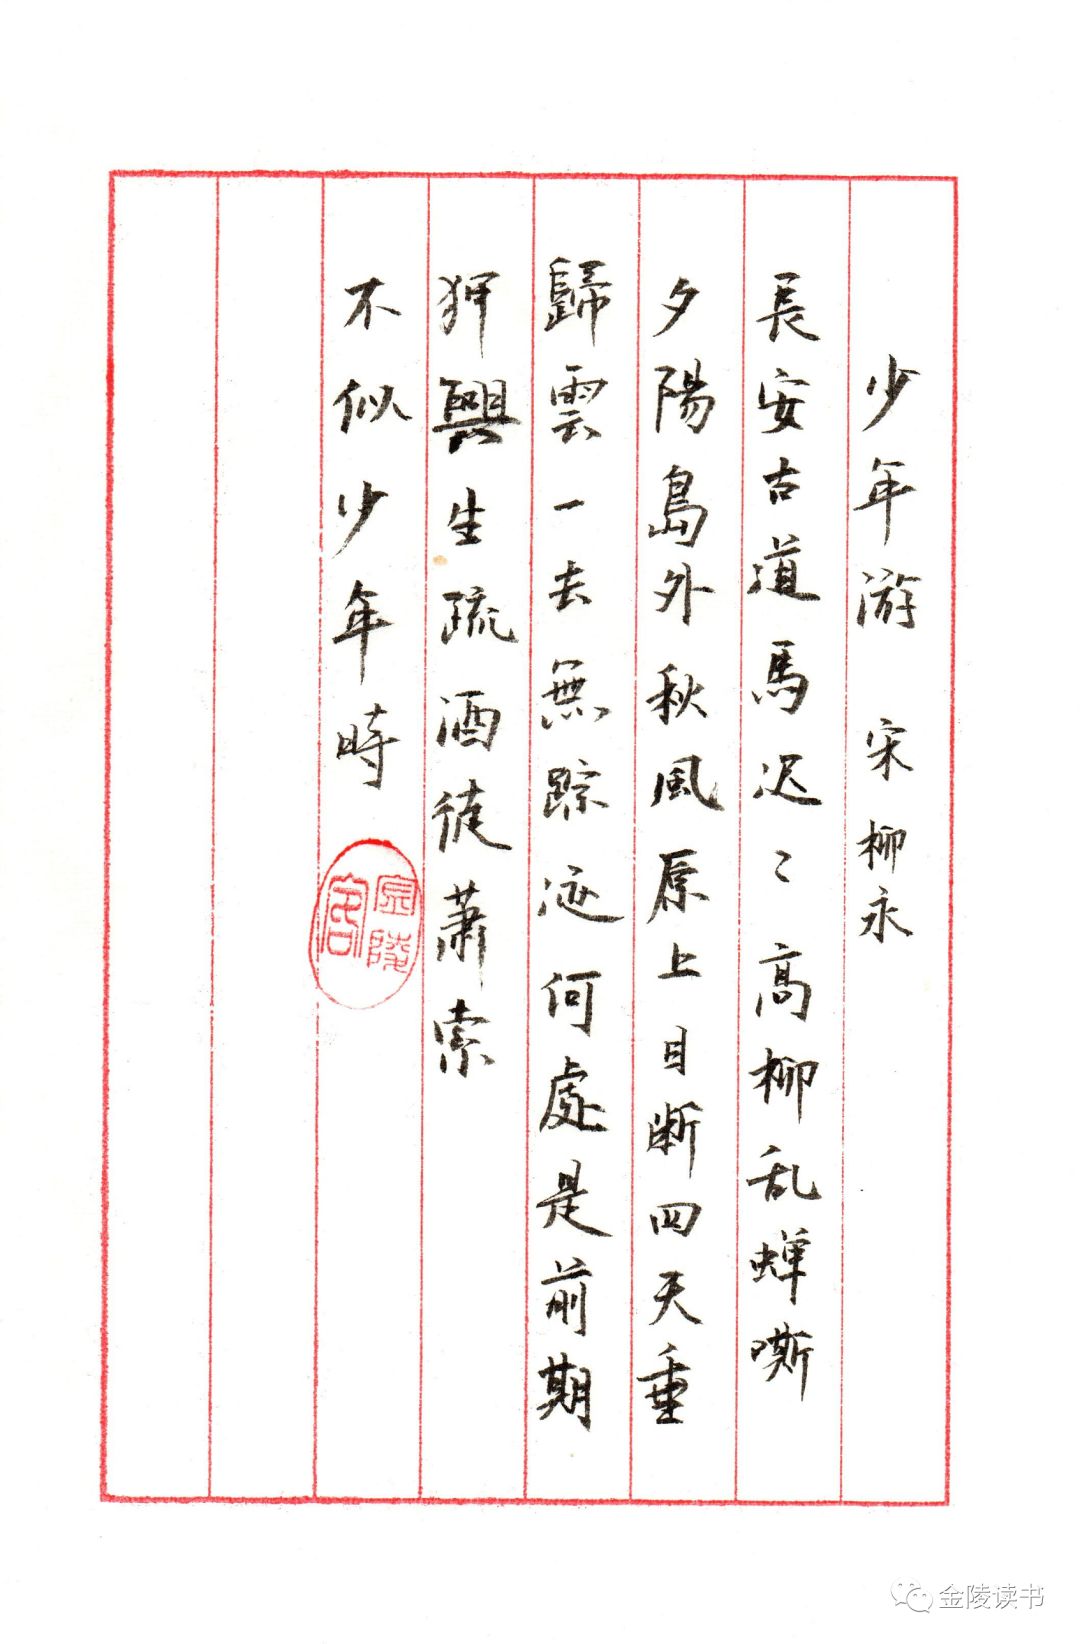 少年游 宋 柳永
長安古道馬迟〻高柳乱蝉嘶
夕陽島外秋風原上目断四天垂
歸雲一去無踪迹何處是前期
狎興生疏酒徒萧索
不似少年時
金陵客
金陵读书